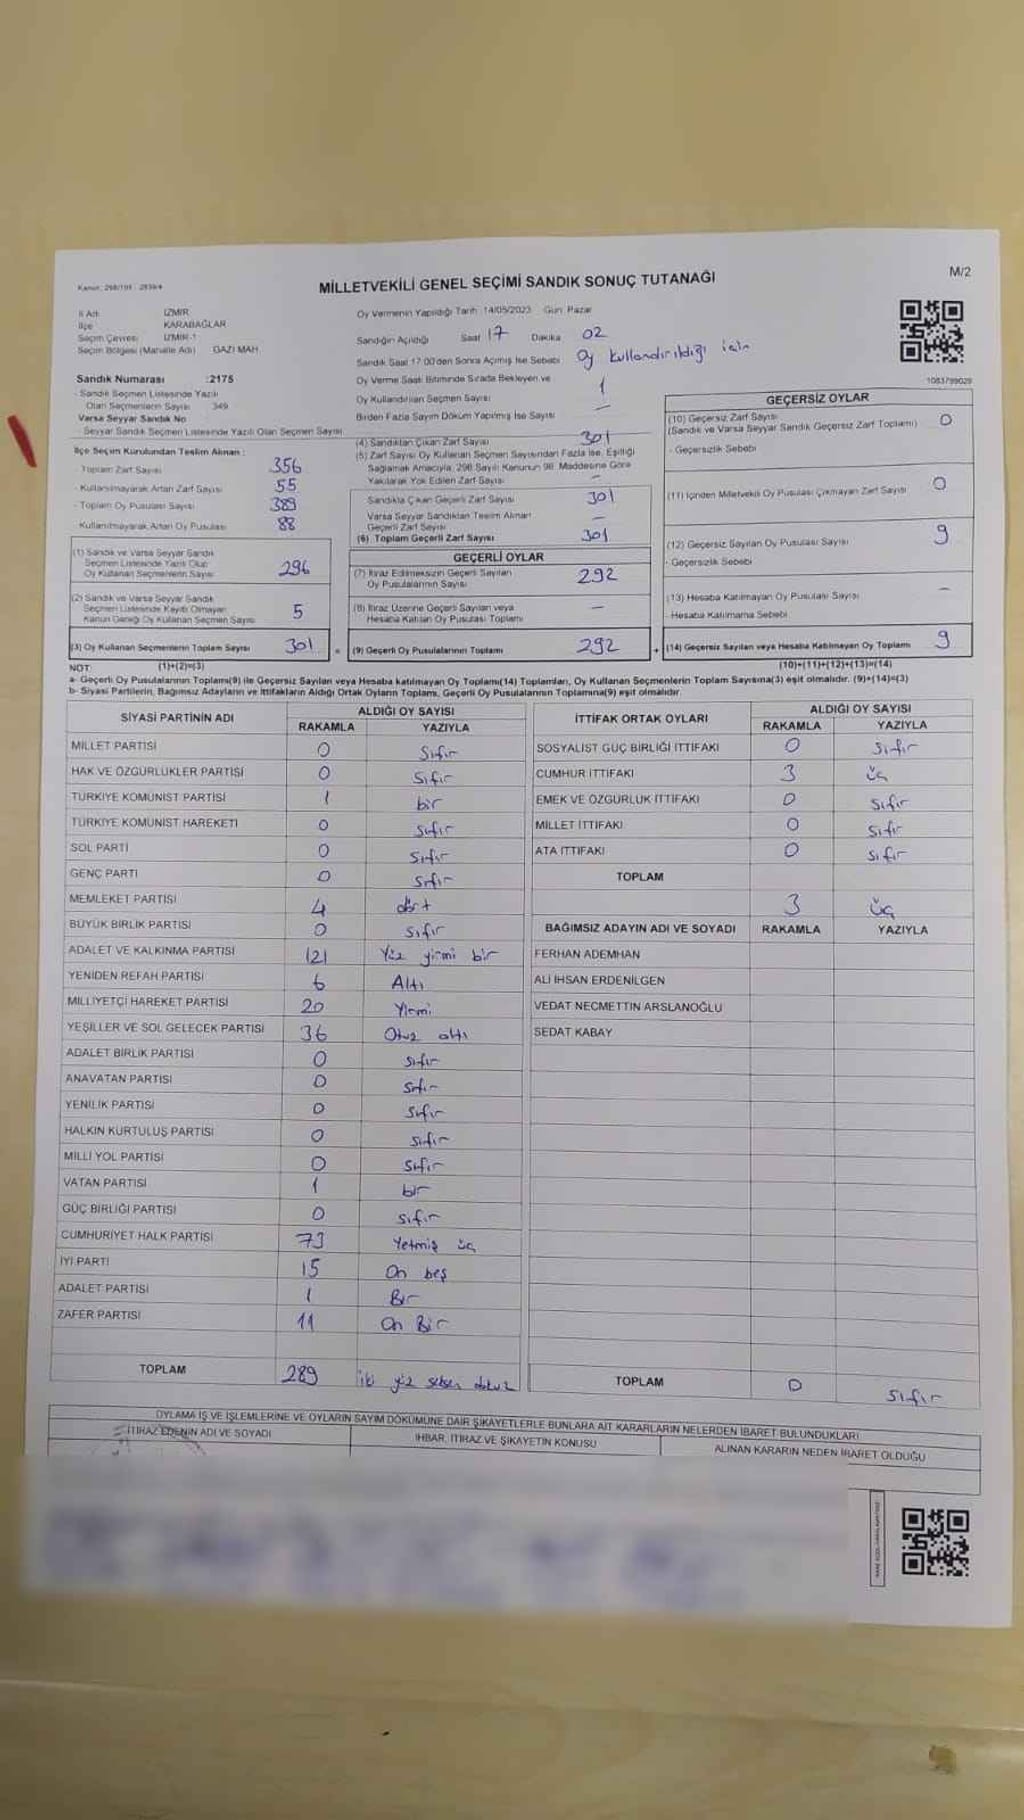 MİLLETVEKİLİ GENEL SEÇİMİ SANDIK SONUÇ TUTANAĞI
M/2
İl Adı İZMİR
İlçe KARABAĞLAR
Seçim Çevresi İZMİR-1
Seçim Bölgesi (Mahalle Adı) GAZİ MAH.
Sandık Numarası :2175
- Sandık Seçmen Listesinde Yazılı
Olan Seçmenlerin Sayısı 349
Varsa Seyyar Sandık No
- Seyyar Sandık Seçmen Listesinde Yazılı Olan Seçmen Sayısı
İlçe Seçim Kurulundan Teslim Alınan :
- Toplam Zarf Sayısı 356
- Kullanılmayarak Artan Zarf Sayısı 55
- Toplam Oy Pusulası Sayısı 389
Kullanılmayarak Artan Oy Pusulası 88
(1) Sandık ve Varsa Seyyar Sandık
Seçmen Listesinde Yazılı Olup
Oy Kullanan Seçmenlerin Sayısı 296
(2) Sandık ve Varsa Seyyar Sandık
Seçmen Listesinde Kayıtlı Olmayan
Kanun Gereği Oy Kullanan Seçmen Sayısı 5
(3) Oy Kullanan Seçmenlerin Toplam Sayısı 301 =
Oy Vermenin Yapıldığı Tarih: 14/05/2023 Gün: Pazar
Sandığın Açıldığı Saat 17 Dakika 02
Sandık Saat 17:00'den Sonra Açılmış İse Sebebi oy kullandırıldığı için
Oy Verme Saati Bitiminde Sırada Bekleyen ve
Oy Kullandırılan Seçmen Sayısı 1
Birden Fazla Sayım Döküm Yapılmış İse Sayısı —
(4) Sandıktan Çıkan Zarf Sayısı 301
(5) Zarf Sayısı Oy Kullanan Seçmen Sayısından Fazla İse, Eşitliği
Sağlamak Amacıyla, 298 Sayılı Kanunun 98. Maddesine Göre
Yakılarak Yok Edilen Zarf Sayısı —
Sandıkta Çıkan Geçerli Zarf Sayısı 301
Varsa Seyyar Sandıktan Teslim Alınan
Geçerli Zarf Sayısı —
(6) Toplam Geçerli Zarf Sayısı 301
GEÇERLİ OYLAR
(7) İtiraz Edilmeksizin Geçerli Sayılan
Oy Pusulalarının Sayısı 292
(8) İtiraz Üzerine Geçerli Sayılan veya
Hesaba Katılan Oy Pusulası Toplamı —
(9) Geçerli Oy Pusulalarının Toplamı 292 +
1083799029
GEÇERSİZ OYLAR
(10) Geçersiz Zarf Sayısı 0
(Sandık ve Varsa Seyyar Sandık Geçersiz Zarf Toplamı)
- Geçersizlik Sebebi
(11) İçinden Milletvekili Oy Pusulası Çıkmayan Zarf Sayısı 0
(12) Geçersiz Sayılan Oy Pusulası Sayısı 9
- Geçersizlik Sebebi
(13) Hesaba Katılmayan Oy Pusulası Sayısı —
- Hesaba Katılmama Sebebi
(14) Geçersiz Sayılan veya Hesaba Katılmayan Oy Toplamı 9
NOT: (1)+(2)=(3) (10)+(11)+(12)+(13)=(14)
a- Geçerli Oy Pusulalarının Toplamı(9) ile Geçersiz Sayılan veya Hesaba katılmayan Oy Toplamı(14) Toplamları, Oy Kullanan Seçmenlerin Toplam Sayısına(3) eşit olmalıdır. (9)+(14)=(3)
b- Siyasi Partilerin, Bağımsız Adayların ve İttifakların Aldığı Ortak Oyların Toplamı, Geçerli Oy Pusulalarının Toplamına(9) eşit olmalıdır.
SİYASİ PARTİNİN ADI ALDIĞI OY SAYISI
RAKAMLA YAZIYLA
MİLLET PARTİSİ 0 Sıfır
HAK VE ÖZGÜRLÜKLER PARTİSİ 0 Sıfır
TÜRKİYE KOMÜNİST PARTİSİ 1 bir
TÜRKİYE KOMÜNİST HAREKETİ 0 sıfır
SOL PARTİ 0 Sıfır
GENÇ PARTİ 0 Sıfır
MEMLEKET PARTİSİ 4 dört
BÜYÜK BİRLİK PARTİSİ 0 Sıfır
ADALET VE KALKINMA PARTİSİ 121 Yüz yirmi bir
YENİDEN REFAH PARTİSİ 6 Altı
MİLLİYETÇİ HAREKET PARTİSİ 20 Yirmi
YEŞİLLER VE SOL GELECEK PARTİSİ 36 Otuz altı
ADALET BİRLİK PARTİSİ 0 Sıfır
ANAVATAN PARTİSİ 0 Sıfır
YENİLİK PARTİSİ 0 Sıfır
HALKIN KURTULUŞ PARTİSİ 0 Sıfır
MİLLİ YOL PARTİSİ 0 Sıfır
VATAN PARTİSİ 1 bir
GÜÇ BİRLİĞİ PARTİSİ 0 sıfır
CUMHURİYET HALK PARTİSİ 73 Yetmiş üç
İYİ PARTİ 15 On beş
ADALET PARTİSİ 1 Bir
ZAFER PARTİSİ 11 On Bir
TOPLAM 289 iki yüz seksen dokuz
İTTİFAK ORTAK OYLARI ALDIĞI OY SAYISI
RAKAMLA YAZIYLA
SOSYALİST GÜÇ BİRLİĞİ İTTİFAKI 0 Sıfır
CUMHUR İTTİFAKI 3 üç
EMEK VE ÖZGÜRLÜK İTTİFAKI 0 Sıfır
MİLLET İTTİFAKI 0 Sıfır
ATA İTTİFAKI 0 Sıfır
TOPLAM 3 üç
BAĞIMSIZ ADAYIN ADI VE SOYADI RAKAMLA YAZIYLA
FERHAN ADEMHAN
ALİ İHSAN ERDENİLGEN
VEDAT NECMETTİN ARSLANOĞLU
SEDAT KABAY
TOPLAM 0 Sıfır
OYLAMA İŞ VE İŞLEMLERİNE VE OYLARIN SAYIM DÖKÜMÜNE DAİR ŞİKAYETLERLE BUNLARA AİT KARARLARIN NELERDEN İBARET BULUNDUKLARI
İTİRAZ EDENİN ADI VE SOYADI İHBAR, İTİRAZ VE ŞİKAYETİN KONUSU ALINAN KARARIN NEDEN İBARET OLDUĞU